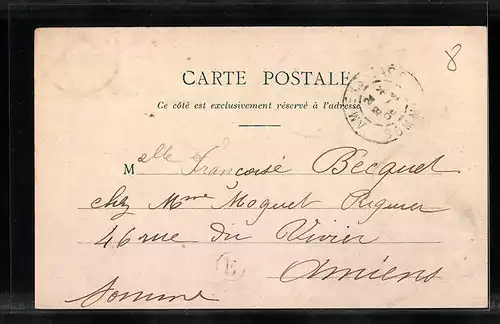 8
CARTE POSTALE
Ce côté est exclusivement réservé à l'adresse
Melle Françoise Becquet
chez Mme Moguet Riquier
46 rue du Vivier
Amiens
Somme